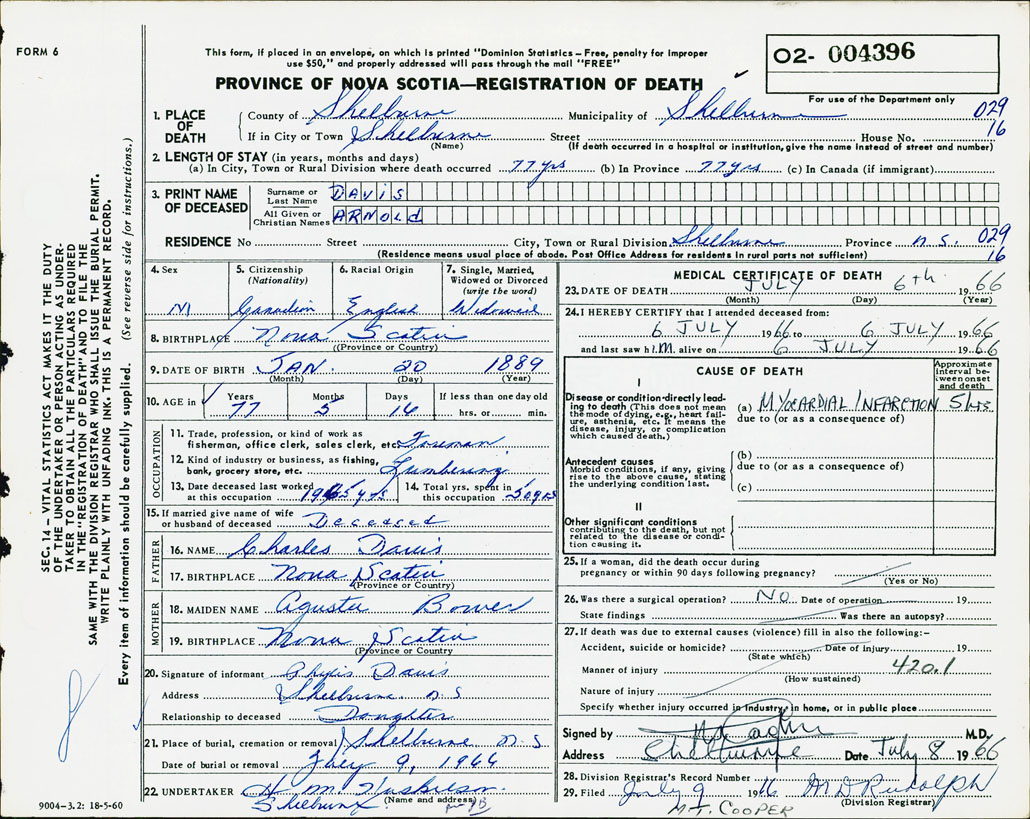 FORM 6
This form, if placed in an envelope, on which is printed "Dominion Statistics – Free, penalty for improper
use $50," and properly addressed will pass through the mail "FREE"
PROVINCE OF NOVA SCOTIA—REGISTRATION OF DEATH
O2- 004396
For use of the Department only
1. PLACE OF DEATH
County of Shelburne Municipality of Shelburne 029
If in City or Town Shelburne Street House No. 16
(Name) (If death occurred in a hospital or institution, give the name instead of street and number)
2. LENGTH OF STAY (in years, months and days)
(a) In City, Town or Rural Division where death occurred 77 yrs (b) In Province 77 yrs (c) In Canada (if immigrant)
3. PRINT NAME OF DECEASED
Surname or Last Name DAVIS
All Given or Christian Names ARNOLd
RESIDENCE No Street City, Town or Rural Division Shelburne Province n.s. 029
(Residence means usual place of abode. Post Office Address for residents in rural parts not sufficient) 16
4. Sex M
5. Citizenship (Nationality) Canadian
6. Racial Origin English
7. Single, Married, Widowed or Divorced (write the word) Widowed
8. BIRTHPLACE Nova Scotia
(Province or Country)
9. DATE OF BIRTH JAN. 20 1889
(Month) (Day) (Year)
10. AGE in Years 77 Months 5 Days 16 If less than one day old hrs. or min.
OCCUPATION
11. Trade, profession, or kind of work as
fisherman, office clerk, sales clerk, etc. Foreman
12. Kind of industry or business, as fishing,
bank, grocery store, etc. Lumbering
13. Date deceased last worked
at this occupation
14. Total yrs. spent in
this occupation 50 yrs
15. If married give name of wife
or husband of deceased Deceased
FATHER
16. NAME Charles Davis
17. BIRTHPLACE Nova Scotia
(Province or Country)
MOTHER
18. MAIDEN NAME Agusta Bower
19. BIRTHPLACE Nova Scotia
(Province or Country)
20. Signature of informant Phylis Davis
Address Shelburne n.s
Relationship to deceased Daughter
21. Place of burial, cremation or removal Shelburne n.s
Date of burial or removal July 9, 1966
22. UNDERTAKER H M
(Name and address)
Shelburne
9004–3.2: 18-5-60
MEDICAL CERTIFICATE OF DEATH
23. DATE OF DEATH JULY 6th 1966
(Month) (Day) (Year)
24. I HEREBY CERTIFY that I attended deceased from:
6 JULY 1966 to 6 JULY 1966
and last saw h.I.M. alive on 6 JULY 1966
CAUSE OF DEATH
Approximate interval between onset and death
I
Disease or condition directly leading to death (This does not mean the mode of dying, e.g., heart failure, asthenia, etc. It means the disease, injury, or complication which caused death.)
(a) MYOCARDIAL INFARCTION 5 hrs
due to (or as a consequence of)
Antecedent causes
Morbid conditions, if any, giving rise to the above cause, stating the underlying condition last.
(b)
due to (or as a consequence of)
(c)
II
Other significant conditions
contributing to the death, but not related to the disease or condition causing it.
25. If a woman, did the death occur during
pregnancy or within 90 days following pregnancy?
(Yes or No)
26. Was there a surgical operation? NO Date of operation 19
State findings Was there an autopsy?
27. If death was due to external causes (violence) fill in also the following:–
Accident, suicide or homicide? Date of injury 19
(State which)
Manner of injury 420.1
(How sustained)
Nature of injury
Specify whether injury occurred in industry, in home, or in public place
Signed by M.D.
Address Shelburne Date July 8 1966
28. Division Registrar's Record Number 16
29. Filed July 9 1966 M D RUDOLPH
(Division Registrar)
M.T. COOPER
SEC. 14 – VITAL STATISTICS ACT MAKES IT THE DUTY
OF THE UNDERTAKER OR PERSON ACTING AS UNDER-
TAKER TO OBTAIN ALL THE PARTICULARS REQUIRED
IN THE "REGISTRATION OF DEATH" AND TO FILE THE
SAME WITH THE DIVISION REGISTRAR WHO SHALL ISSUE THE BURIAL PERMIT.
WRITE PLAINLY WITH UNFADING INK. THIS IS A PERMANENT RECORD.
Every item of information should be carefully supplied. (See reverse side for instructions.)